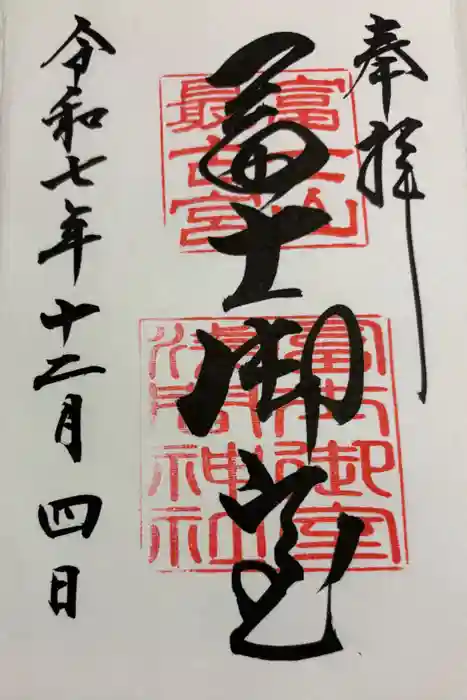 奉拝
冨士御室
富士山
最古宮
冨士御室
浅間神社
令和七年十二月四日